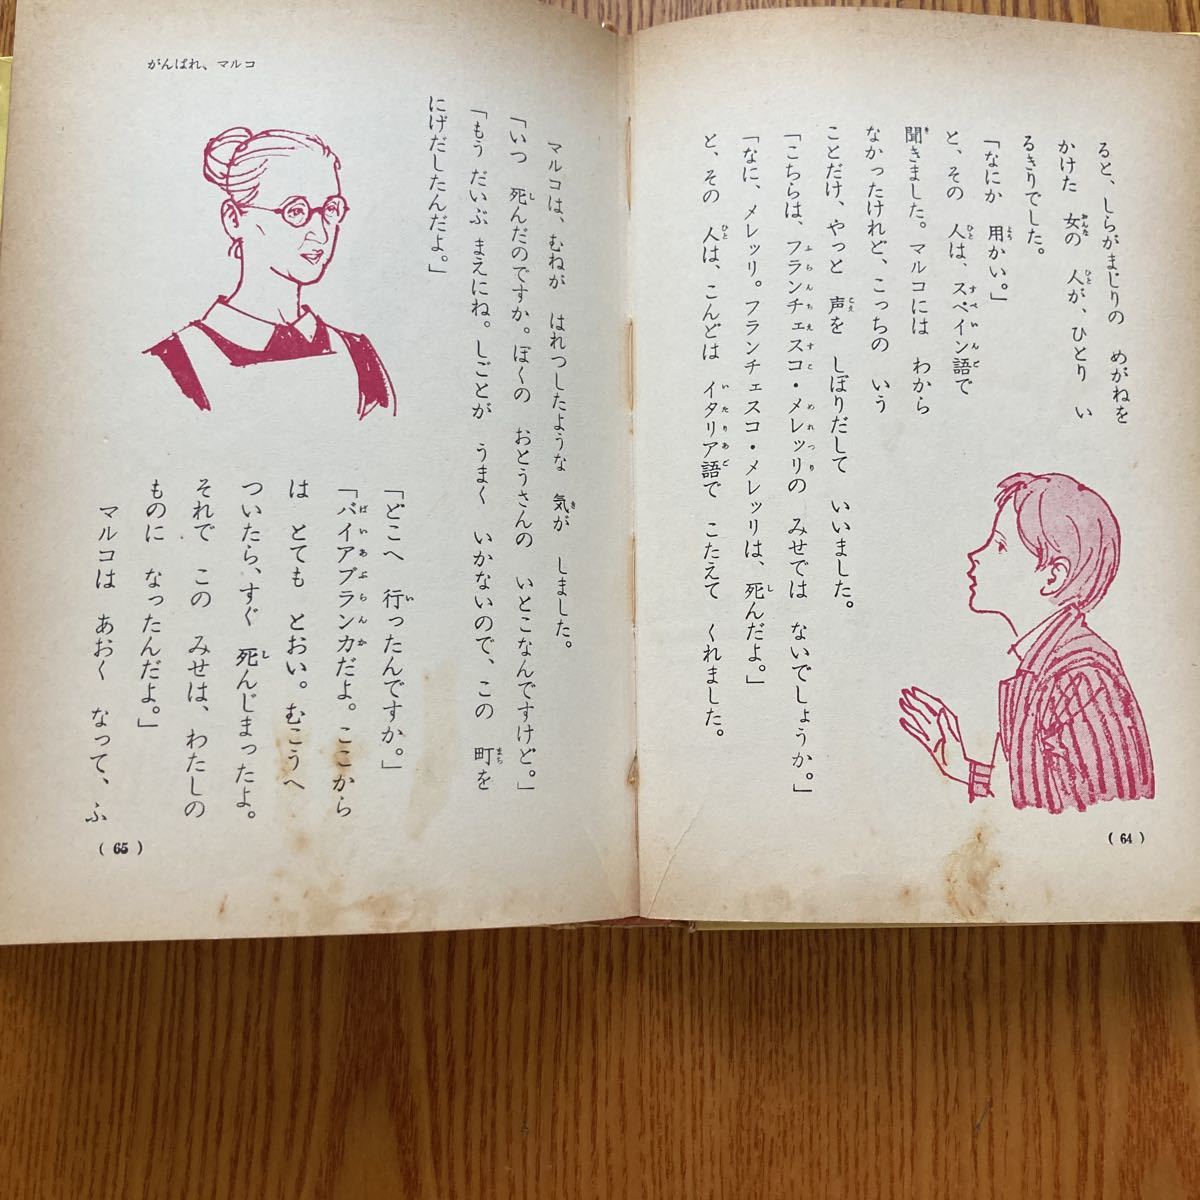 ると、しらがまじりの めがねを
かけた 女の 人が、ひとり い
るきりでした。
「なにか 用かい。」
と、その 人は、スペイン語で
聞きました。マルコには わから
なかったけれど、こっちの いう
ことだけ、やっと 声を しぼりだして いいました。
「こちらは、フランチェスコ・メレッリの みせでは ないでしょうか。」
「なに、メレッリ。フランチェスコ・メレッリは、死んだよ。」
と、その 人は、こんどは イタリア語で こたえて くれました。
(64)
がんばれ、マルコ
マルコは、むねが はれつしたような 気が しました。
「いつ 死んだのですか。ぼくの おとうさんの いとこなんですけど。」
「もう だいぶ まえにね。しごとが うまく いかないので、この 町を
にげだしたんだよ。」
「どこへ 行ったんですか。」
「バイアブランカだよ。ここから
は とても とおい。むこうへ
ついたら、すぐ 死んじまったよ。
それで この みせは、わたしの
ものに なったんだよ。」
マルコは あおく なって、ふ
(65)